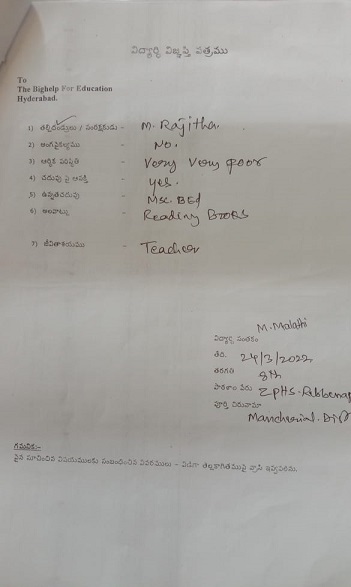 విద్యార్థి విజ్ఞప్తి పత్రము
To
The Bighelp For Education
Hyderabad.
1) తల్లిదండ్రులు / సంరక్షకుడు - M. Rajitha.
2) అంగవైకల్యము - No.
3) ఆర్థిక పరిస్థితి - Very Very poor
4) చదువు పై ఆసక్తి - yes.
5) ఉన్నతచదువు - Msc. BEd
6) అలవాట్లు - Reading Books
7) జీవితాశయము - Teacher
M. Malathi
విద్యార్థి సంతకం
తేది. 24/3/2022
తరగతి 8th
పాఠశాల పేరు ZPHS-
పూర్తి చిరునామా
Mancherial.
గమనిక:-
పైన సూచించిన విషయములకు సంబంధించిన వివరములు - విడిగా తెల్లకాగితముపై వ్రాసి ఇవ్వవలెను.